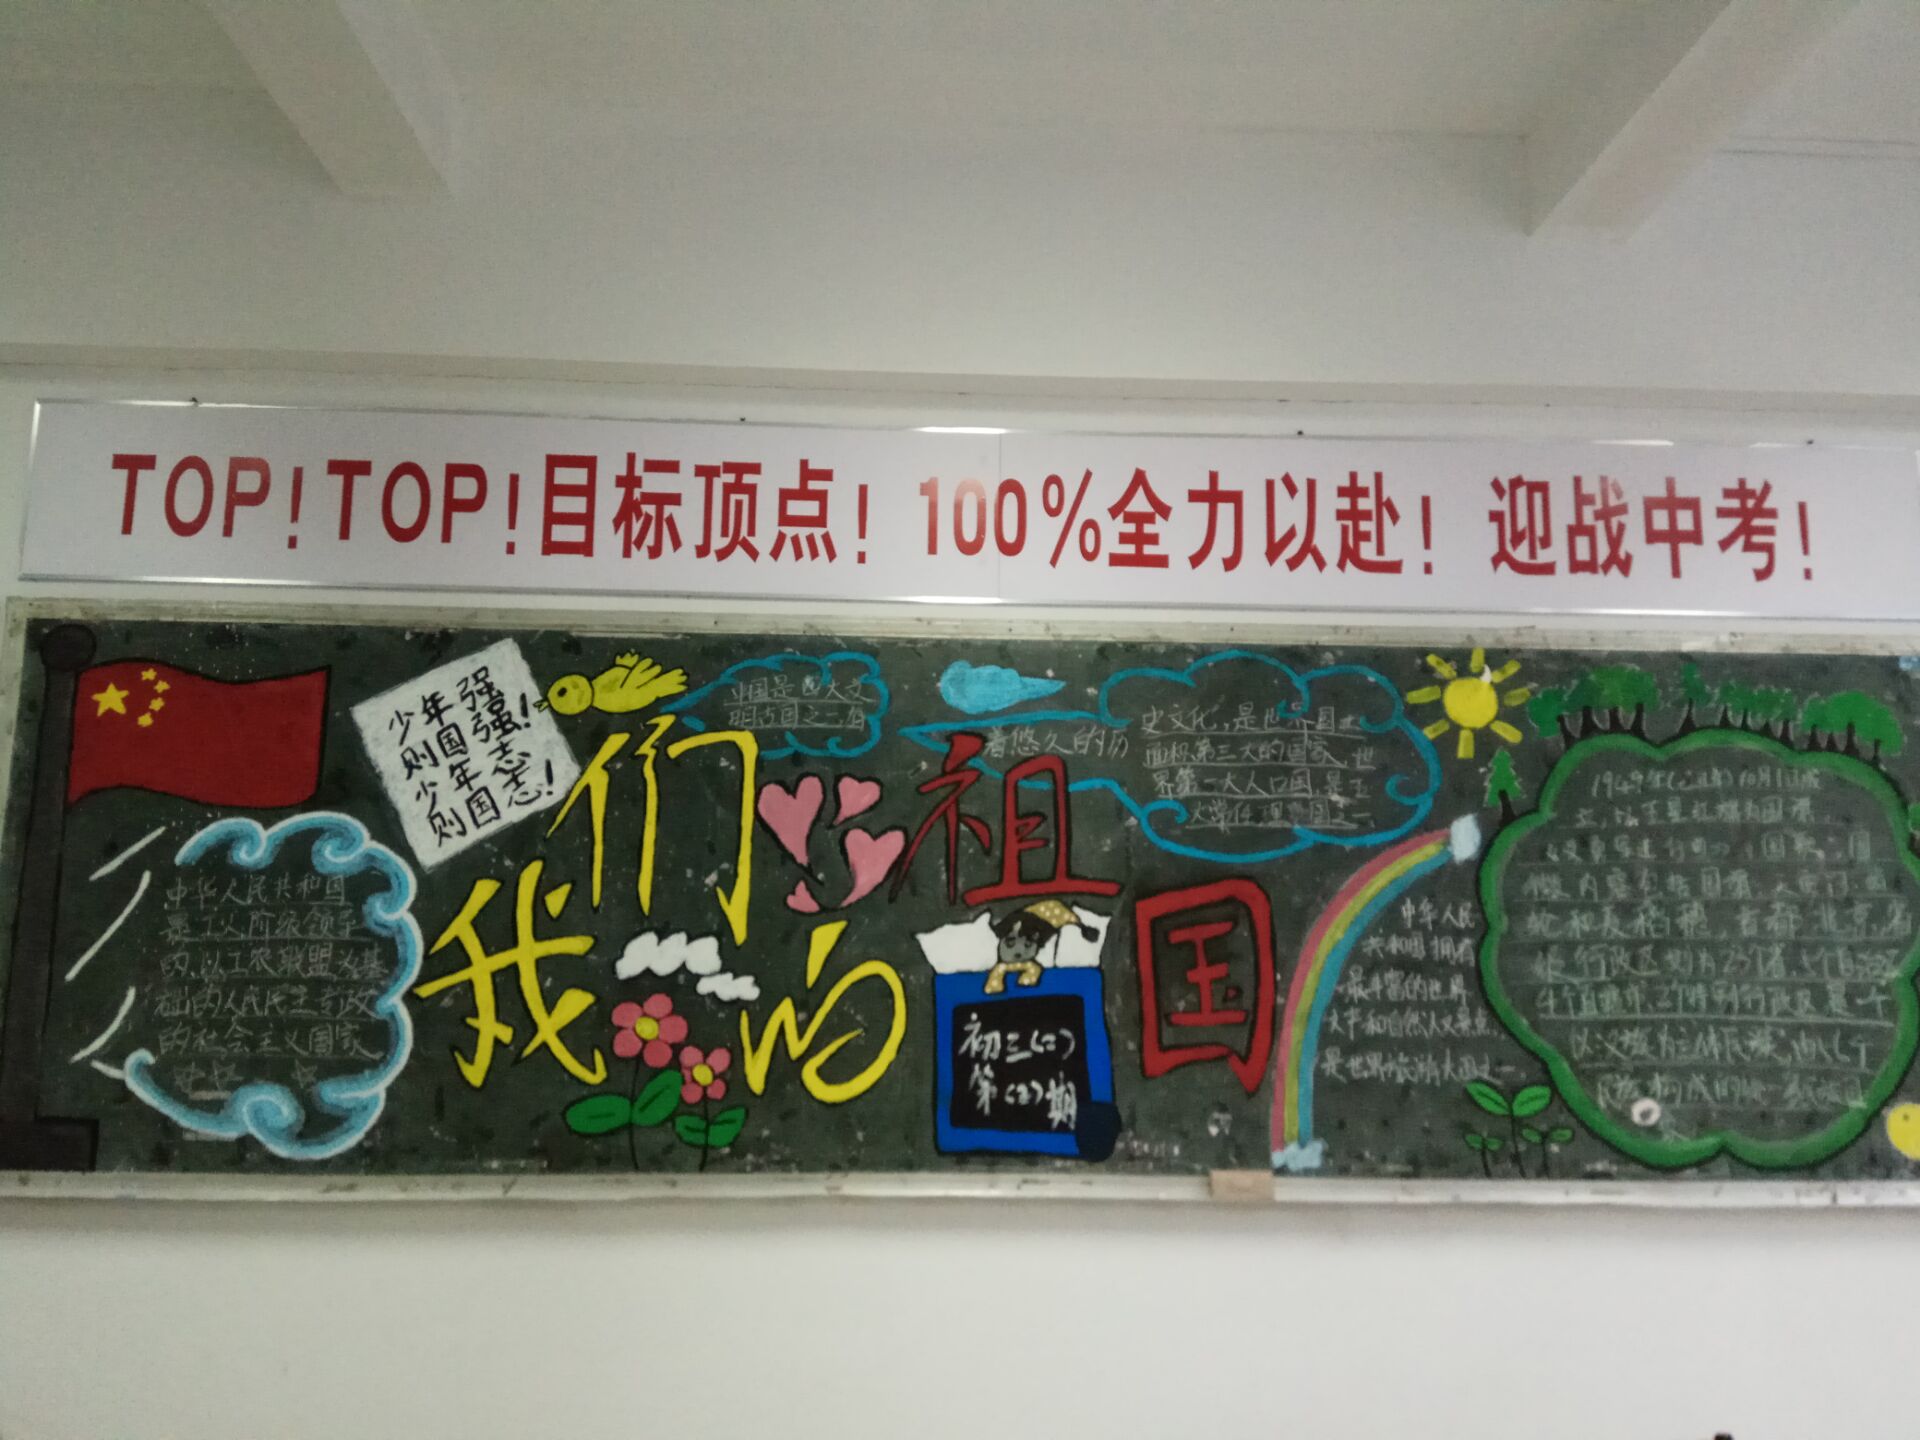 TOP!TOP!目标顶点！100%全力以赴！迎战中考！
少年强
则国强！
少年志
则国志！
我们的祖国
中国是四大文
明古国之一,有
着悠久的历
史文化,是世界国土
面积第三大的国家,世
界第一大人口国,是五
大常任理事国之一
中华人民共和国
是工人阶级领导
的,以工农联盟为基
础的人民民主专政
的社会主义国家
初三(二)
第(2)期
中华人民
共和国拥有
最丰富的世界
文化和自然人文景点,
是世界旅游大国之一
1949年 10月1日成
立,以五星红旗为国旗,
国
徽内容包括国旗、天安门、齿
轮和麦稻穗,首都北京,省
级行政区划为23个省、5个自治区
4个直辖市、2个特别行政区,是一个
以汉族为主体民族,由56个
民族构成的统一多民族国
家